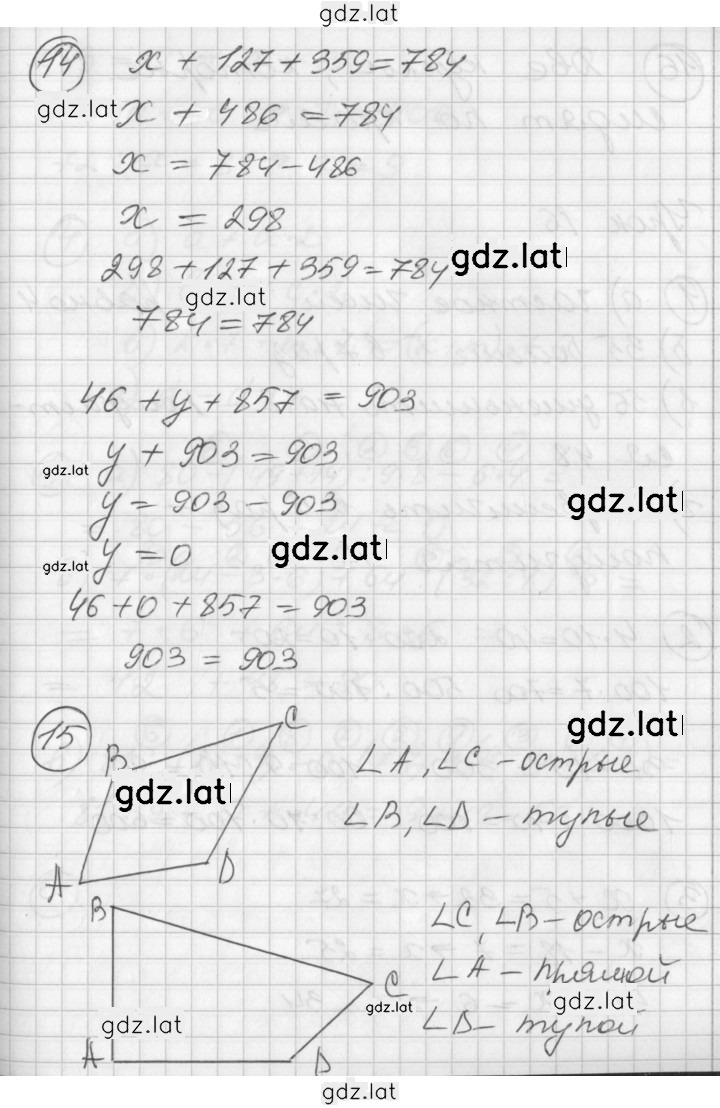 gdz.lat
14 x + 127 + 359 = 784
gdz.lat
x + 486 = 784
x = 784 - 486
x = 298
298 + 127 + 359 = 784 gdz.lat
gdz.lat
784 = 784
46 + y + 857 = 903
gdz.lat y + 903 = 903
y = 903 - 903 gdz.lat
gdz.lat y = 0 gdz.lat
46 + 0 + 857 = 903
903 = 903
15 C gdz.lat
B ∠A, ∠C - острые
gdz.lat ∠B, ∠D - тупые
A D
B ∠C, ∠B - острые
C ∠A - прямой
gdz.lat gdz.lat gdz.lat
A D ∠D - тупой
gdz.lat